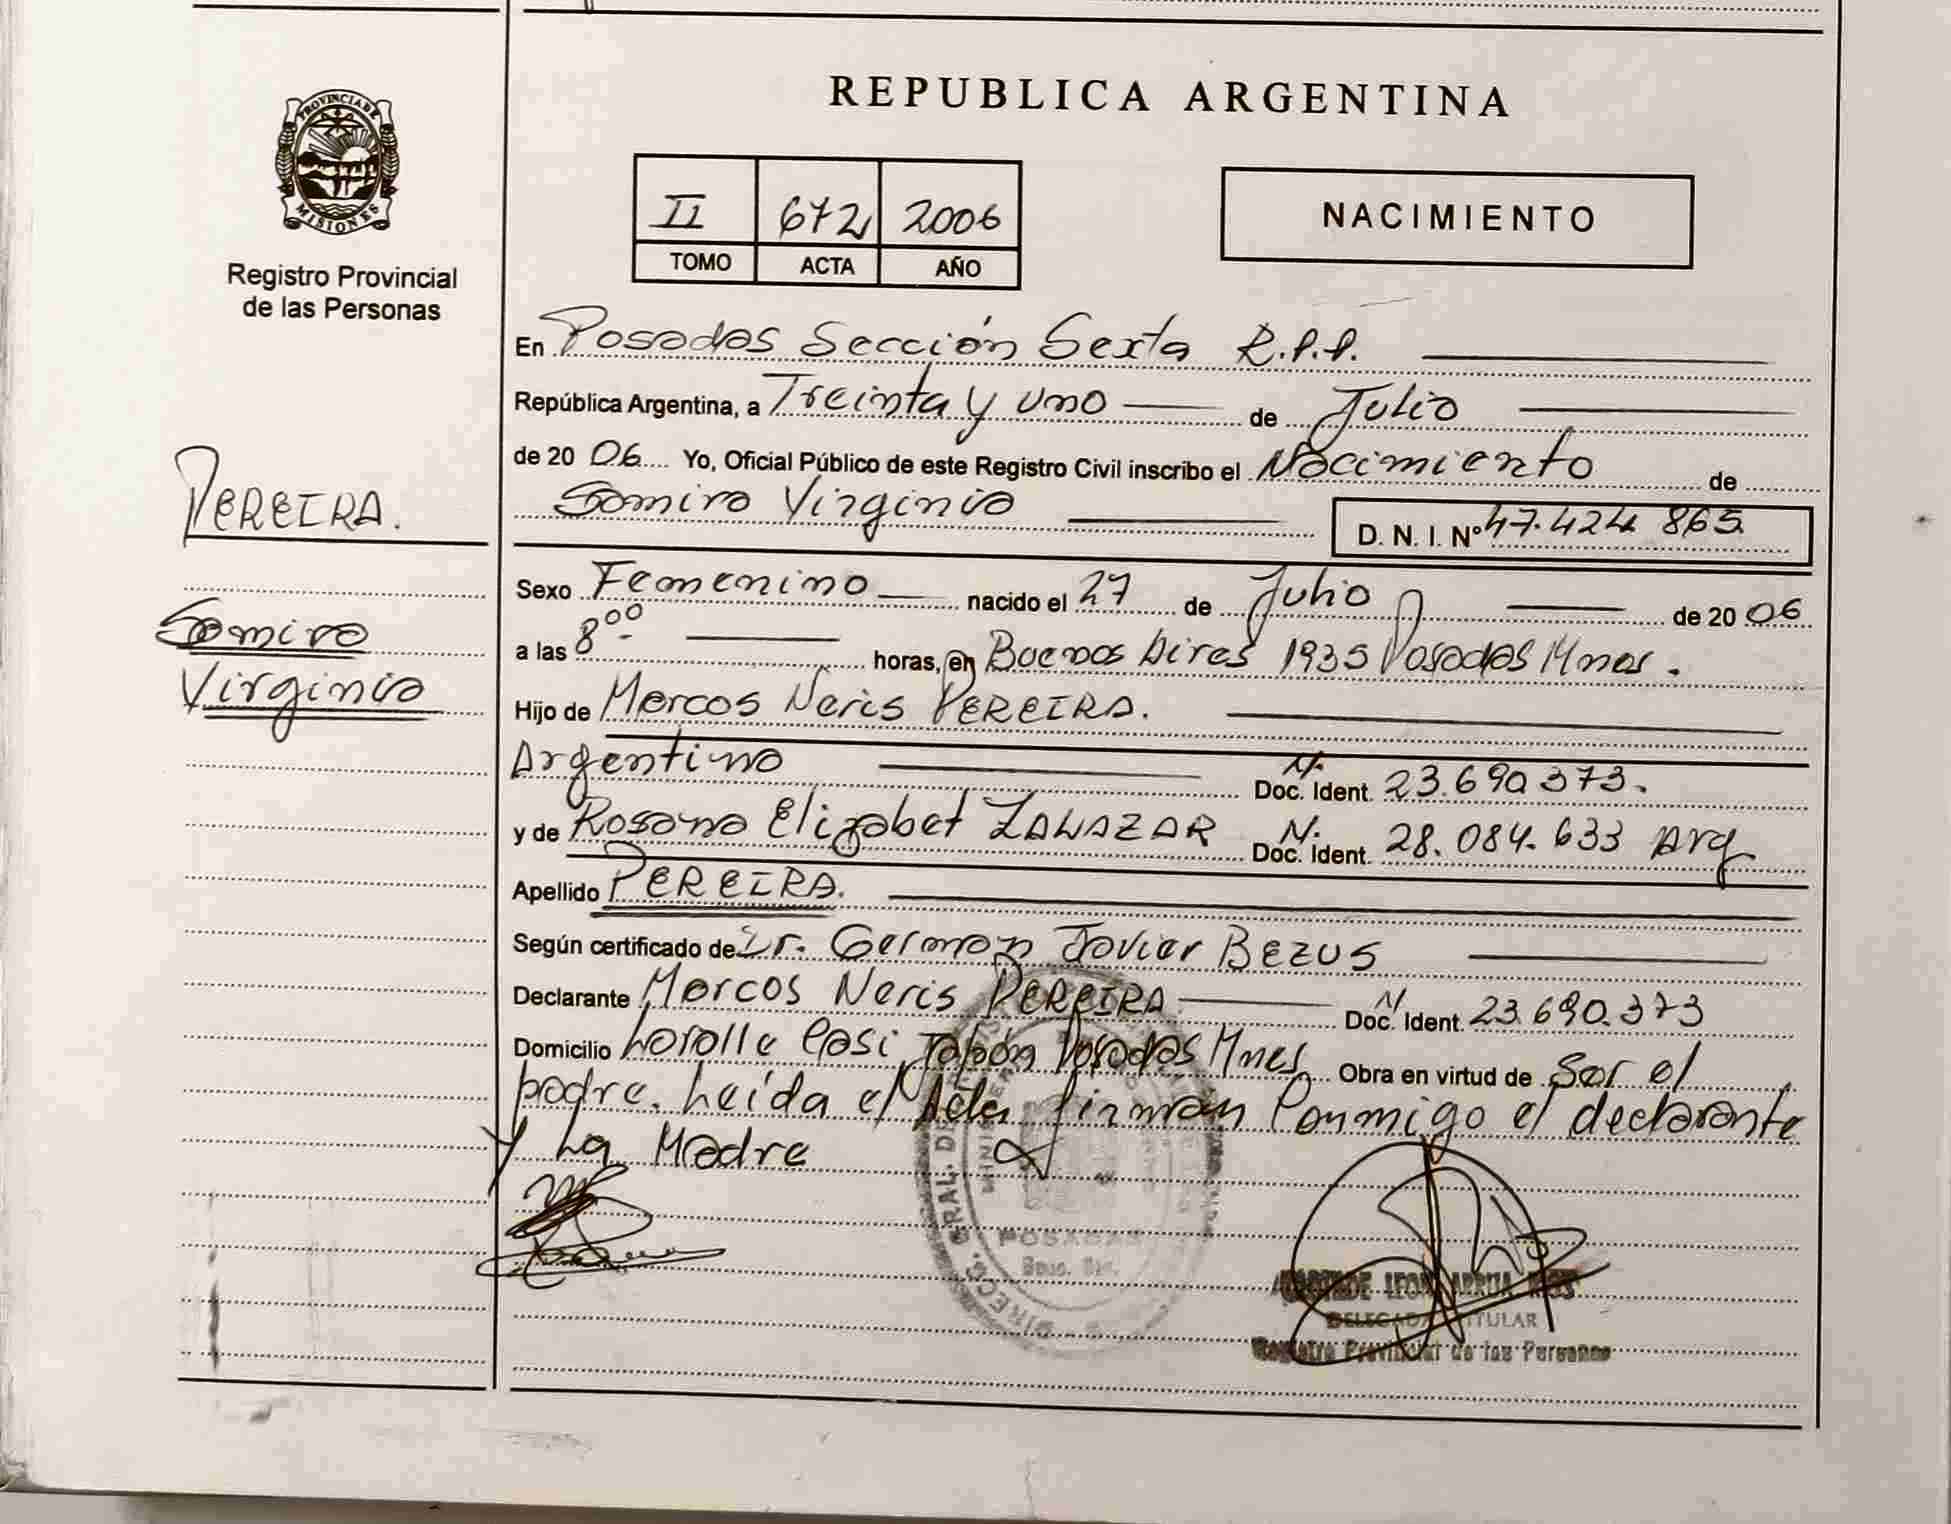 REPUBLICA ARGENTINA
PROVINCIA DE
MISIONES
Registro Provincial
de las Personas
II 672 2006
TOMO ACTA AÑO
NACIMIENTO
En Posadas Sección Sexta R.P.P.
República Argentina, a Treinta y uno de Julio
de 2006 Yo, Oficial Público de este Registro Civil inscribo el Nacimiento de
Samira Virginia
D. N. I. Nº 47.424 865
PEREIRA.
Samira
Virginia
Sexo Femenino nacido el 27 de Julio de 2006
a las 8⁰⁰ horas, en Buenos Aires 1935 Posadas Mnes.
Hijo de Marcos Neris PEREIRA.
Argentino Doc. Ident. 23.690 373.
y de Rosana Elizabet ZALAZAR Doc. Ident. 28.084.633 Arg
Apellido PEREIRA.
Según certificado de Dr. German Javier BEZUS
Declarante Marcos Neris PEREIRA Doc. Ident. 23.690.373
Domicilio Posadas Mnes Obra en virtud de Ser el
padre. Leída el Acta firman Conmigo el declarante
y La Madre
POSADAS
DELEGADA TITULAR
Registro Provincial de las Personas